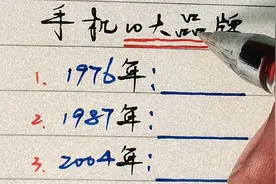 手机10大品牌
1. 1976年:
2. 1987年:
3. 2004年: